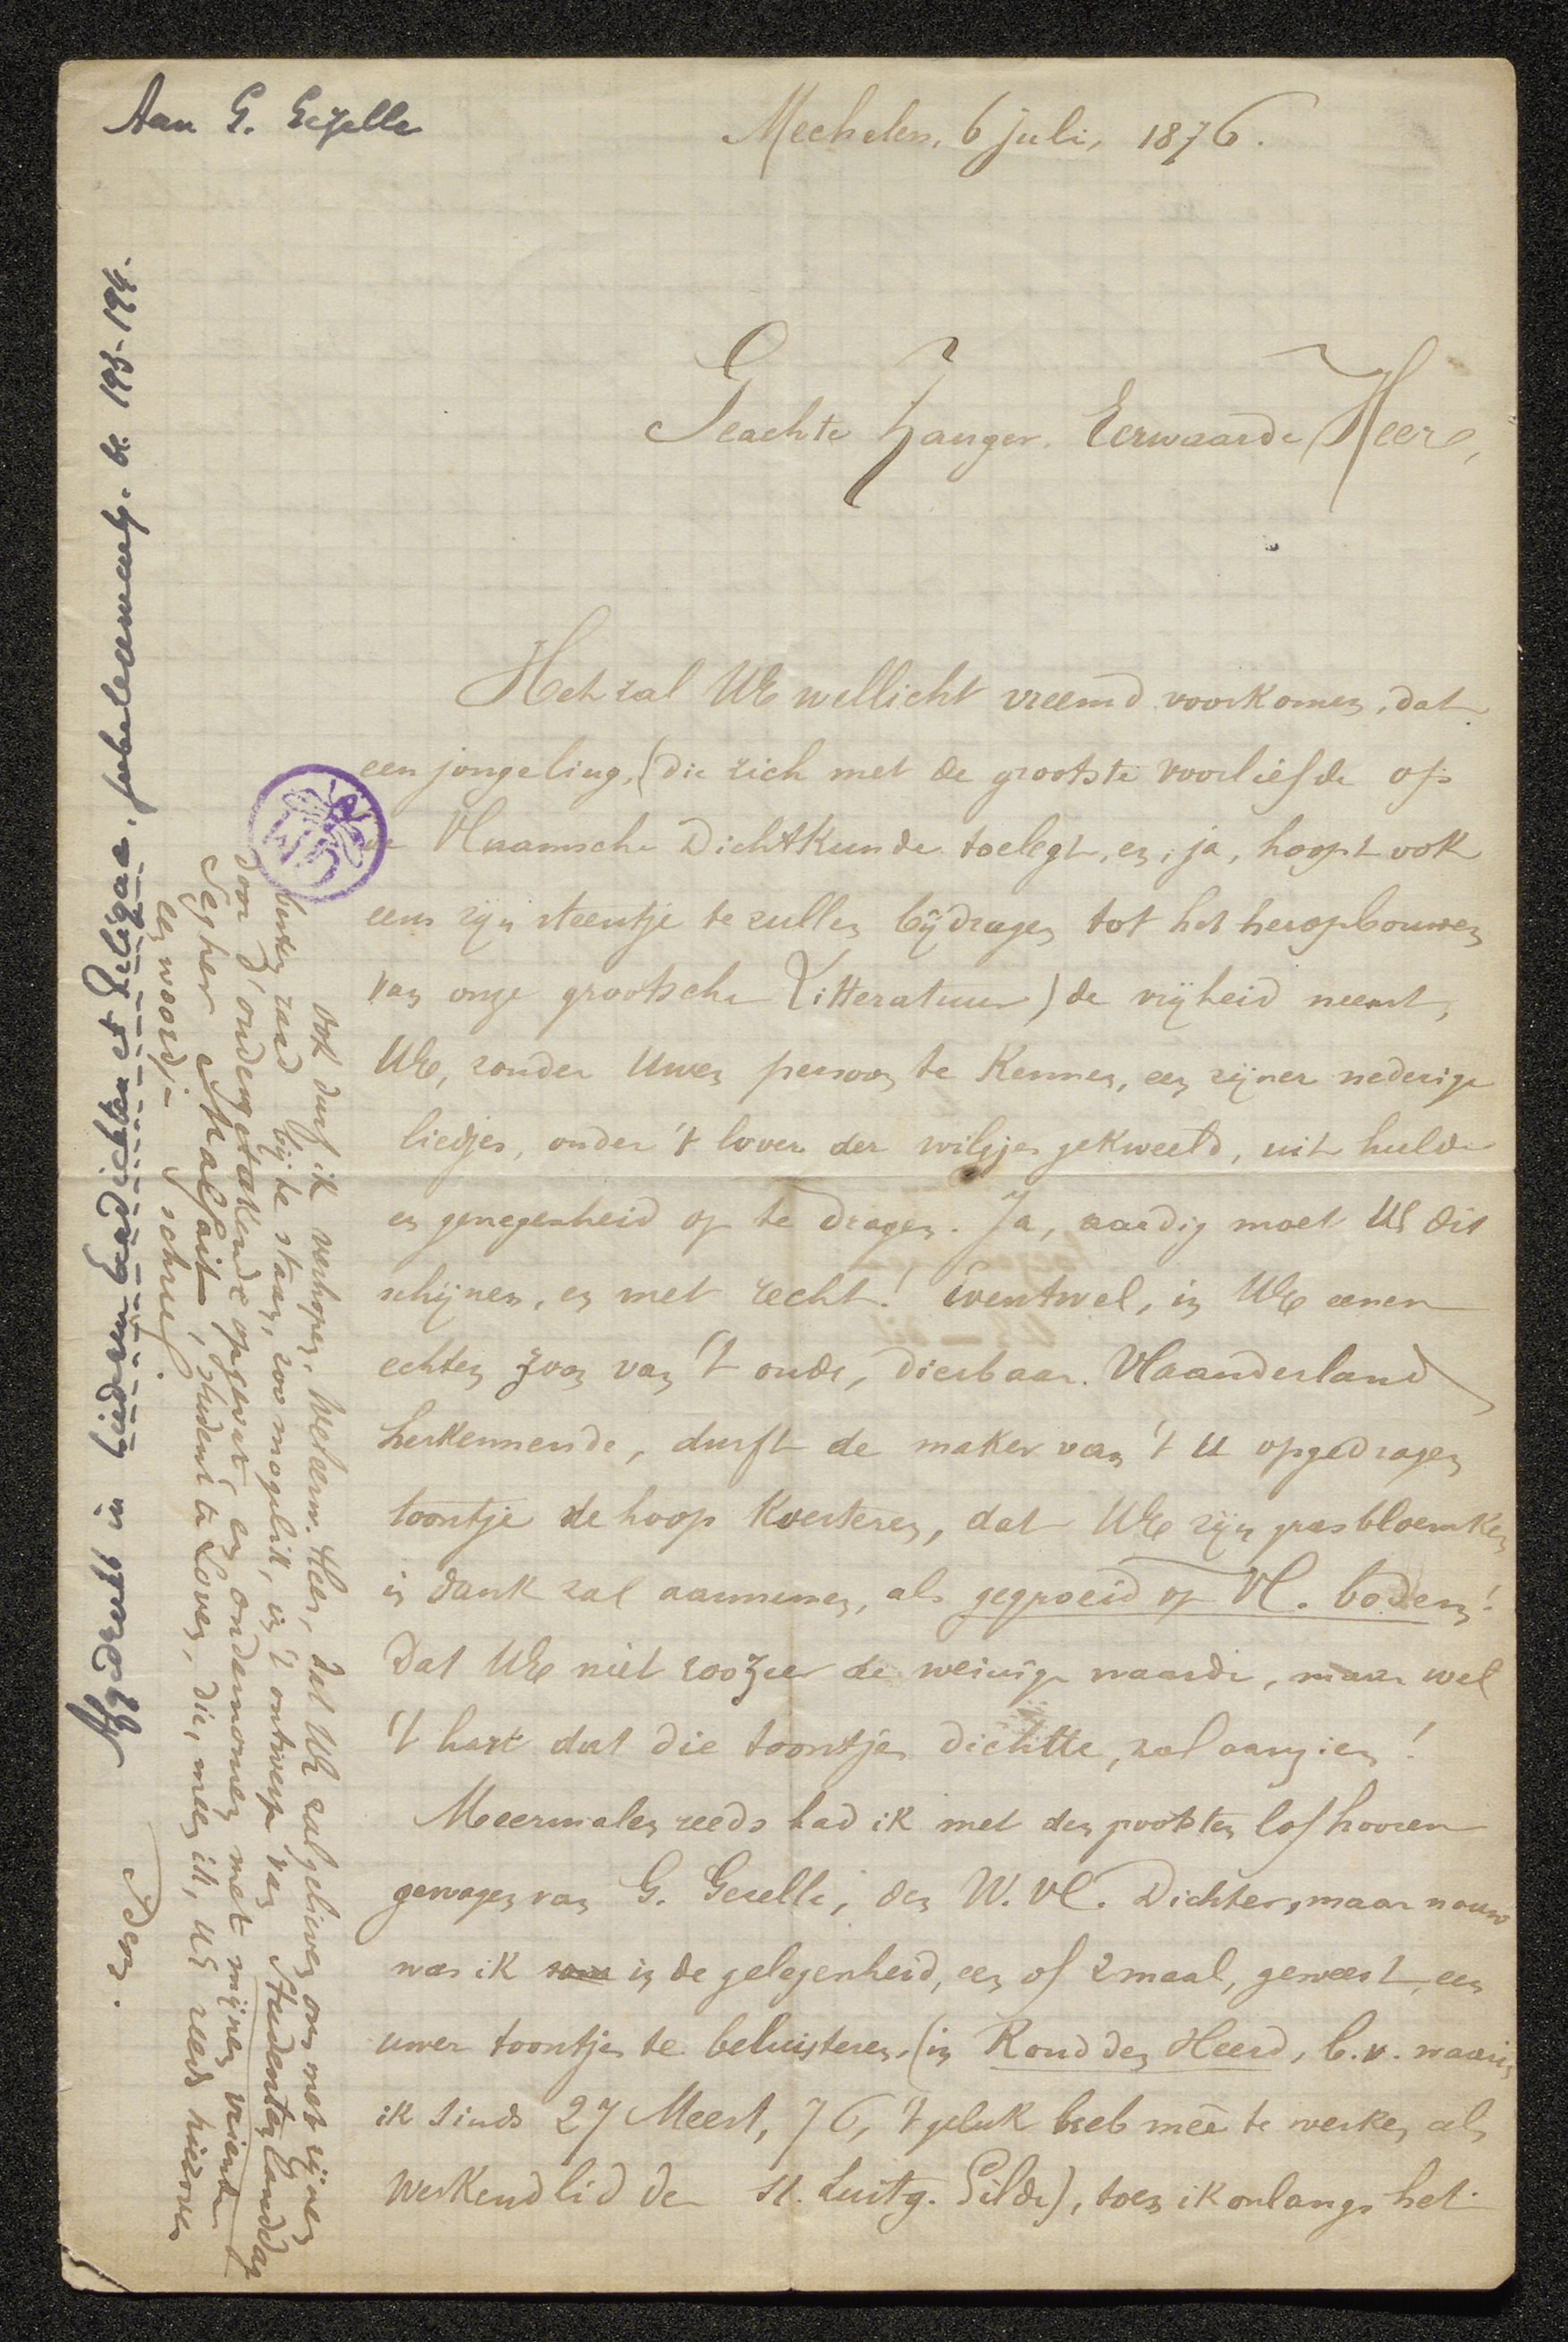 Aan G. Gezelle
Mechelen, 6 juli, 1876.
Geachte Zanger. Eerwaarde Heer,
Het zal UE wellicht vreemd voorkomen, dat
een jongeling, (die zich met de grootste voorliefde op
de Vlaamsche Dichtkunde toelegt, en, ja, hoopt ook
eens zijn steentje te zullen bijdragen tot het heropbouwen
van onze grootsche Litteratuur) de vrijheid neemt,
UE, zonder Uwen persoon te kennen, een zijner nederige
liedjes, onder 't lover der wilgjes gekweeld, uit hulde
en genegenheid op te dragen. Ja, aardig moet UE dit
schijnen, en met recht! Eventwel, in UE eenen
echten zoon van 't oude, dierbaar Vlaanderland
herkennende, durft de maker van 't U opgedragen
toontje de hoop koesteren, dat UE zijn grasbloemken
in dank zal aannemen, als gegroeid op Vl. bodem!
Dat UE niet zoozeer de weinige waarde, maar wel
't hart dat die toontjes dichtte, zal aanzien!
Meermalen reeds had ik met den grootsten lof hooren
gewagen van G. Gezelle, den W. Vl. Dichter, maar nauw
was ik in de gelegenheid, een of 2 maal, geweest, een
uwer toontjes te beluisteren, (in Rond den Heerd, b.v. waarin
ik sinds 27 Meert, 76, 't geluk heb meê te werken als
werkend lid der St. Luitg. Gilde), toen ik onlangs het
Ook durf ik verhopen, Weleerw. Heer, dat UE zal gelieven ons met zijnen
besten raad bij te staan, zoo mogelik, in 't ontwerp van Studenten Landdag
door d' ondergetekende opgevat, en ondernomen met mijnen vriend
Segher Malfait, student te Loven, die, meen ik, UE reeds hierover
een woordje schreef.
Idem.
Afgedrukt in Liederen Eerdichten et Reliqua, jubileumuitg. bl. 193-194.